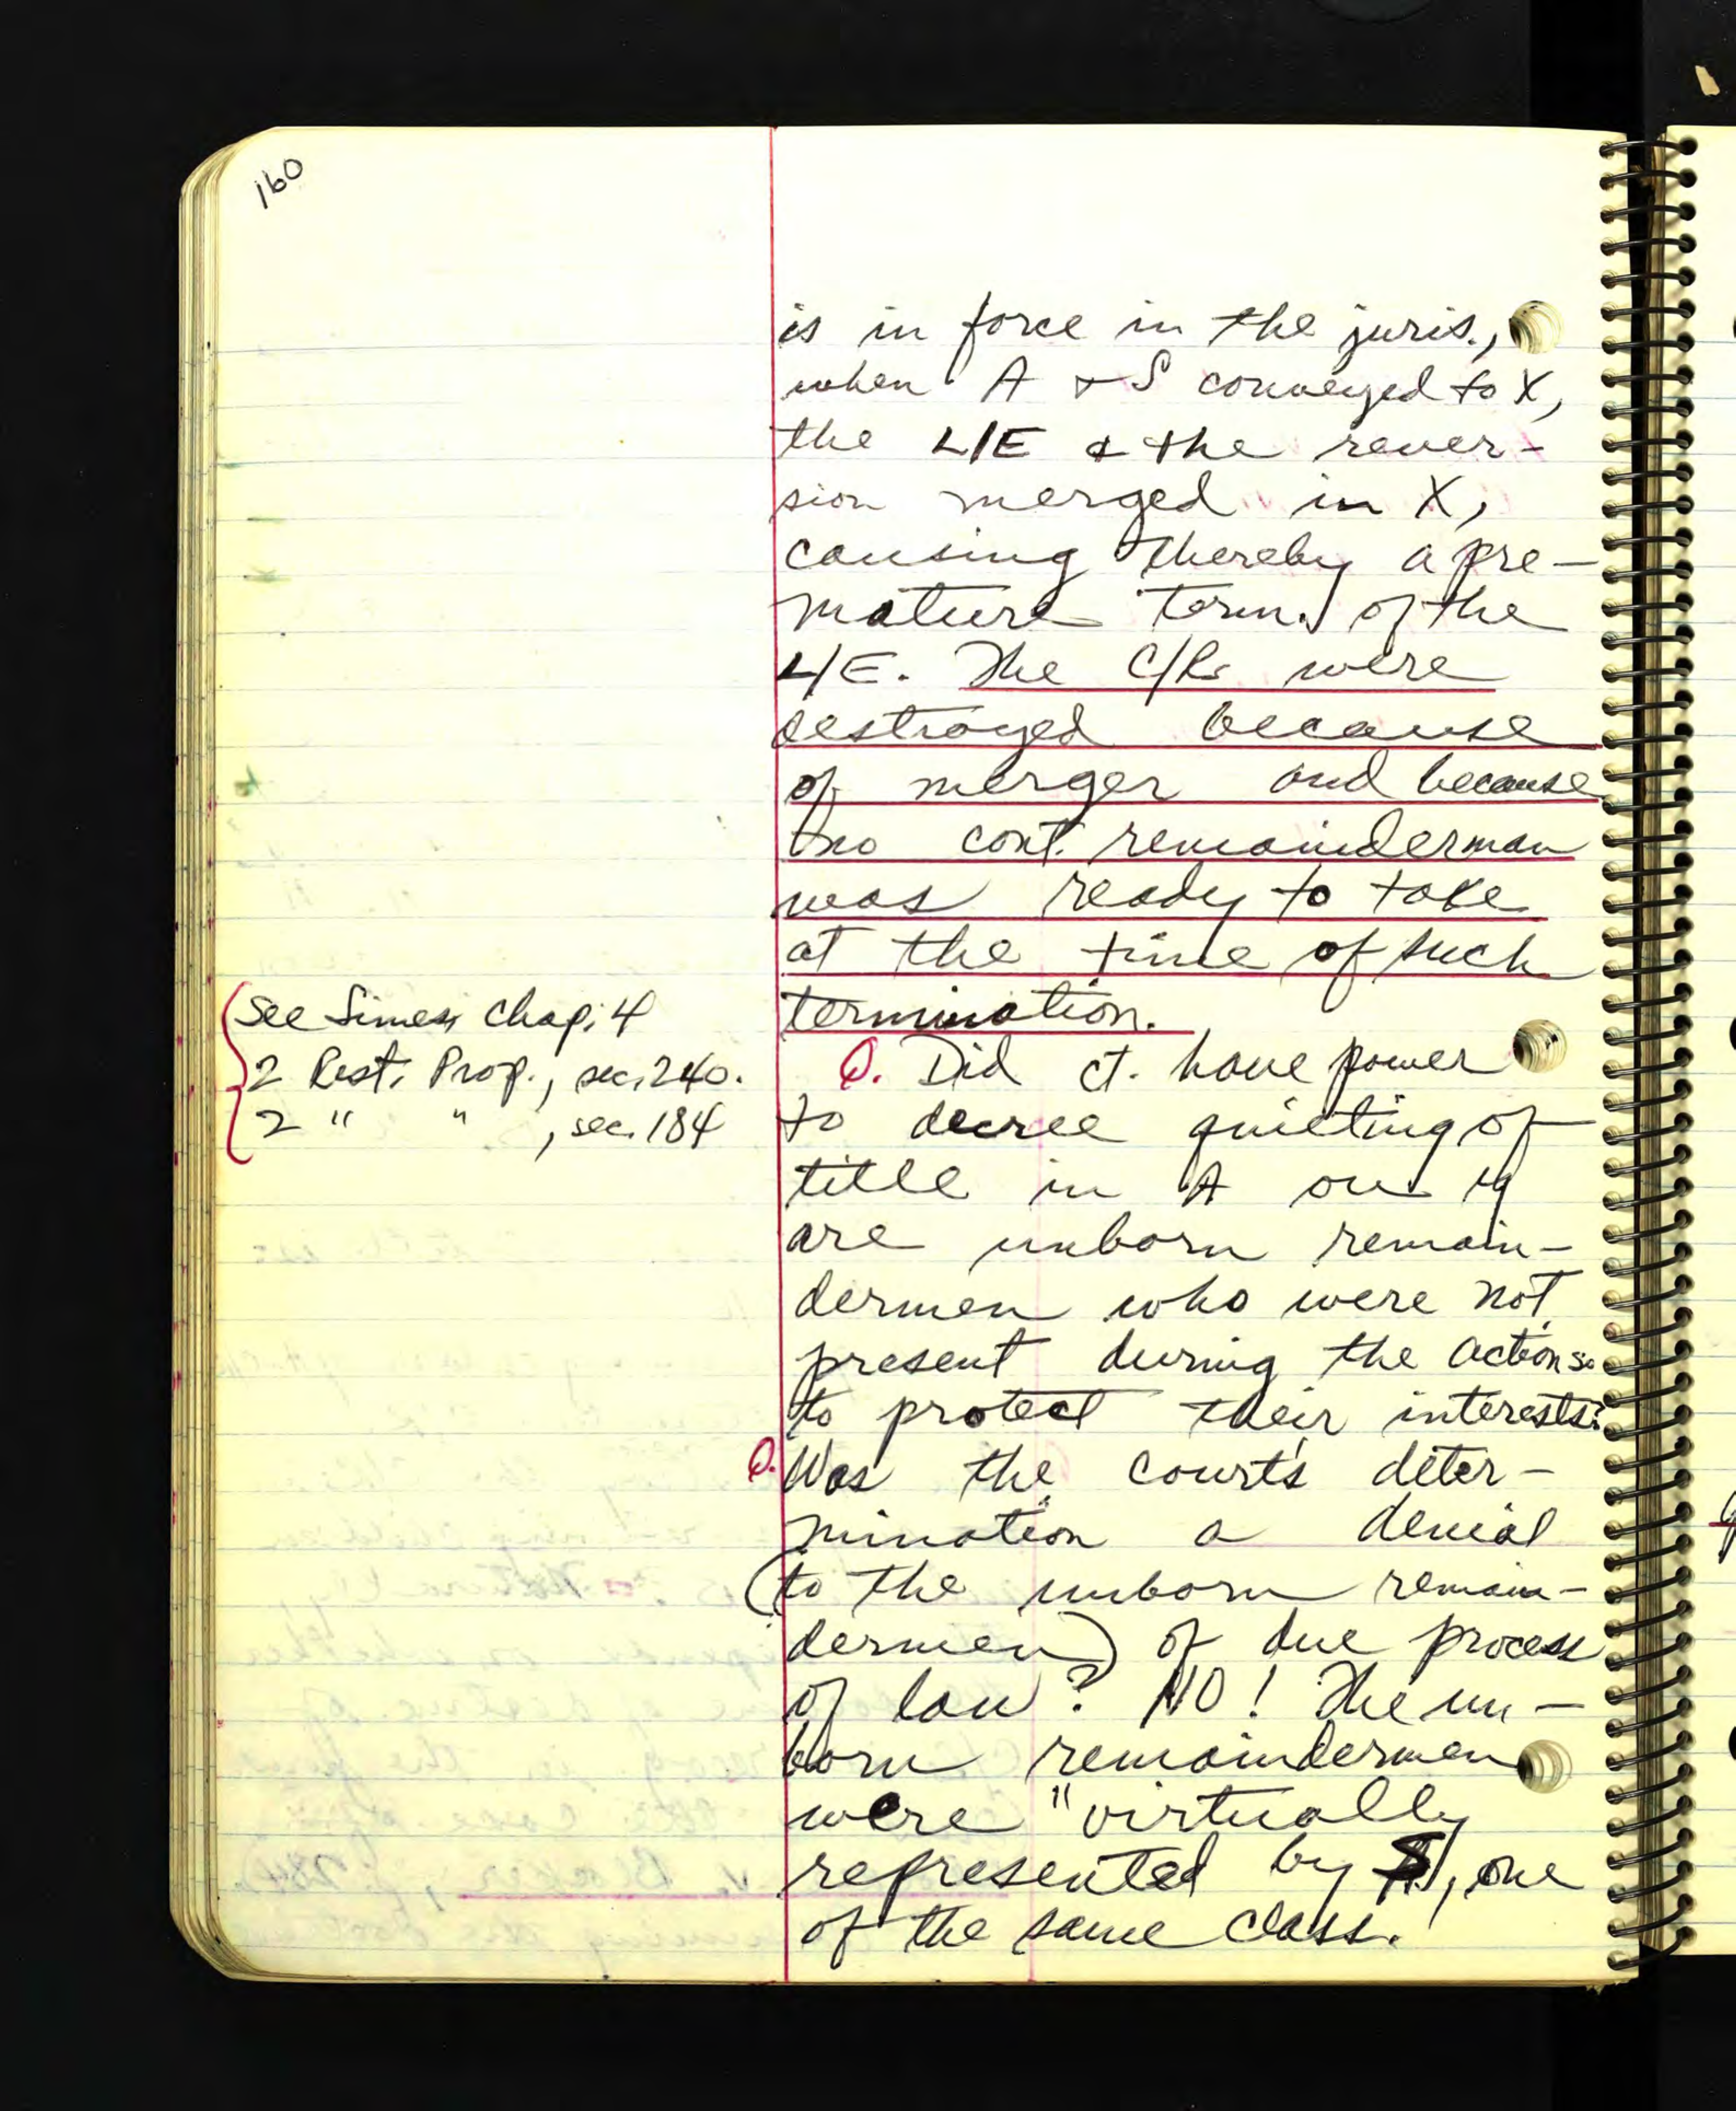 160
is in force in the juris.,
when A + S conveyed to X,
the L/E & the rever-
sion merged in X,
causing thereby a pre-
mature term. of the
L/E. The C/Rs were
destroyed because
of merger and because
no cont. remainderman
was ready to take
at the time of such
termination.
See Simes, Chap. 4
2 Rest. Prop., sec. 240.
2 " " , sec. 184
Q. Did ct. have power
to decree quieting of
title in A
are unborn remain-
dermen who were not
present during the action so
to protect their interests?
Q. Was the court's deter-
mination a denial
(to the unborn remain-
dermen) of due process
of law? NO! The un-
born remaindermen
were "virtually
represented by S, one
of the same class.